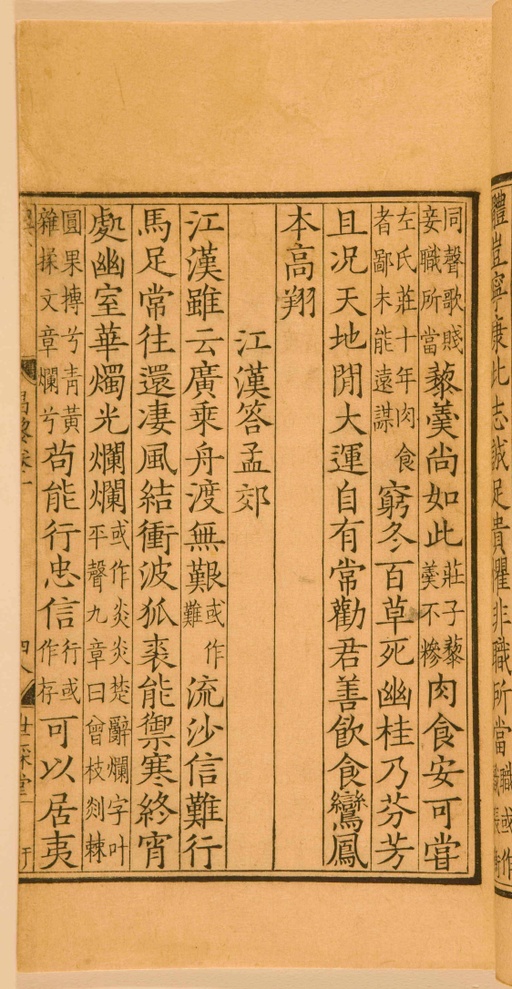 體豈寧康此志誠足貴懼非職所當職或作
同聲歌賤
妾職所當藜羹尚如此莊子藜
羹不糝肉食安可甞
左氏莊十年肉食
者鄙未能遠謀窮冬百草死幽桂乃芬芳
且況天地閒大運自有常勸君善飲食鸞鳳
本高翔
江漢答孟郊
江漢雖云廣乘舟渡無艱或作
難流沙信難行
馬足常往還凄風結衝波狐裘能禦寒終宵
處幽室華燭光爛爛或作炎炎楚辭爛字叶
平聲九章曰曾枝剡棘
圓果摶兮青黃
雜揉文章爛兮茍能行忠信行或
作存可以居夷
昌黎卷一
四
世綵堂